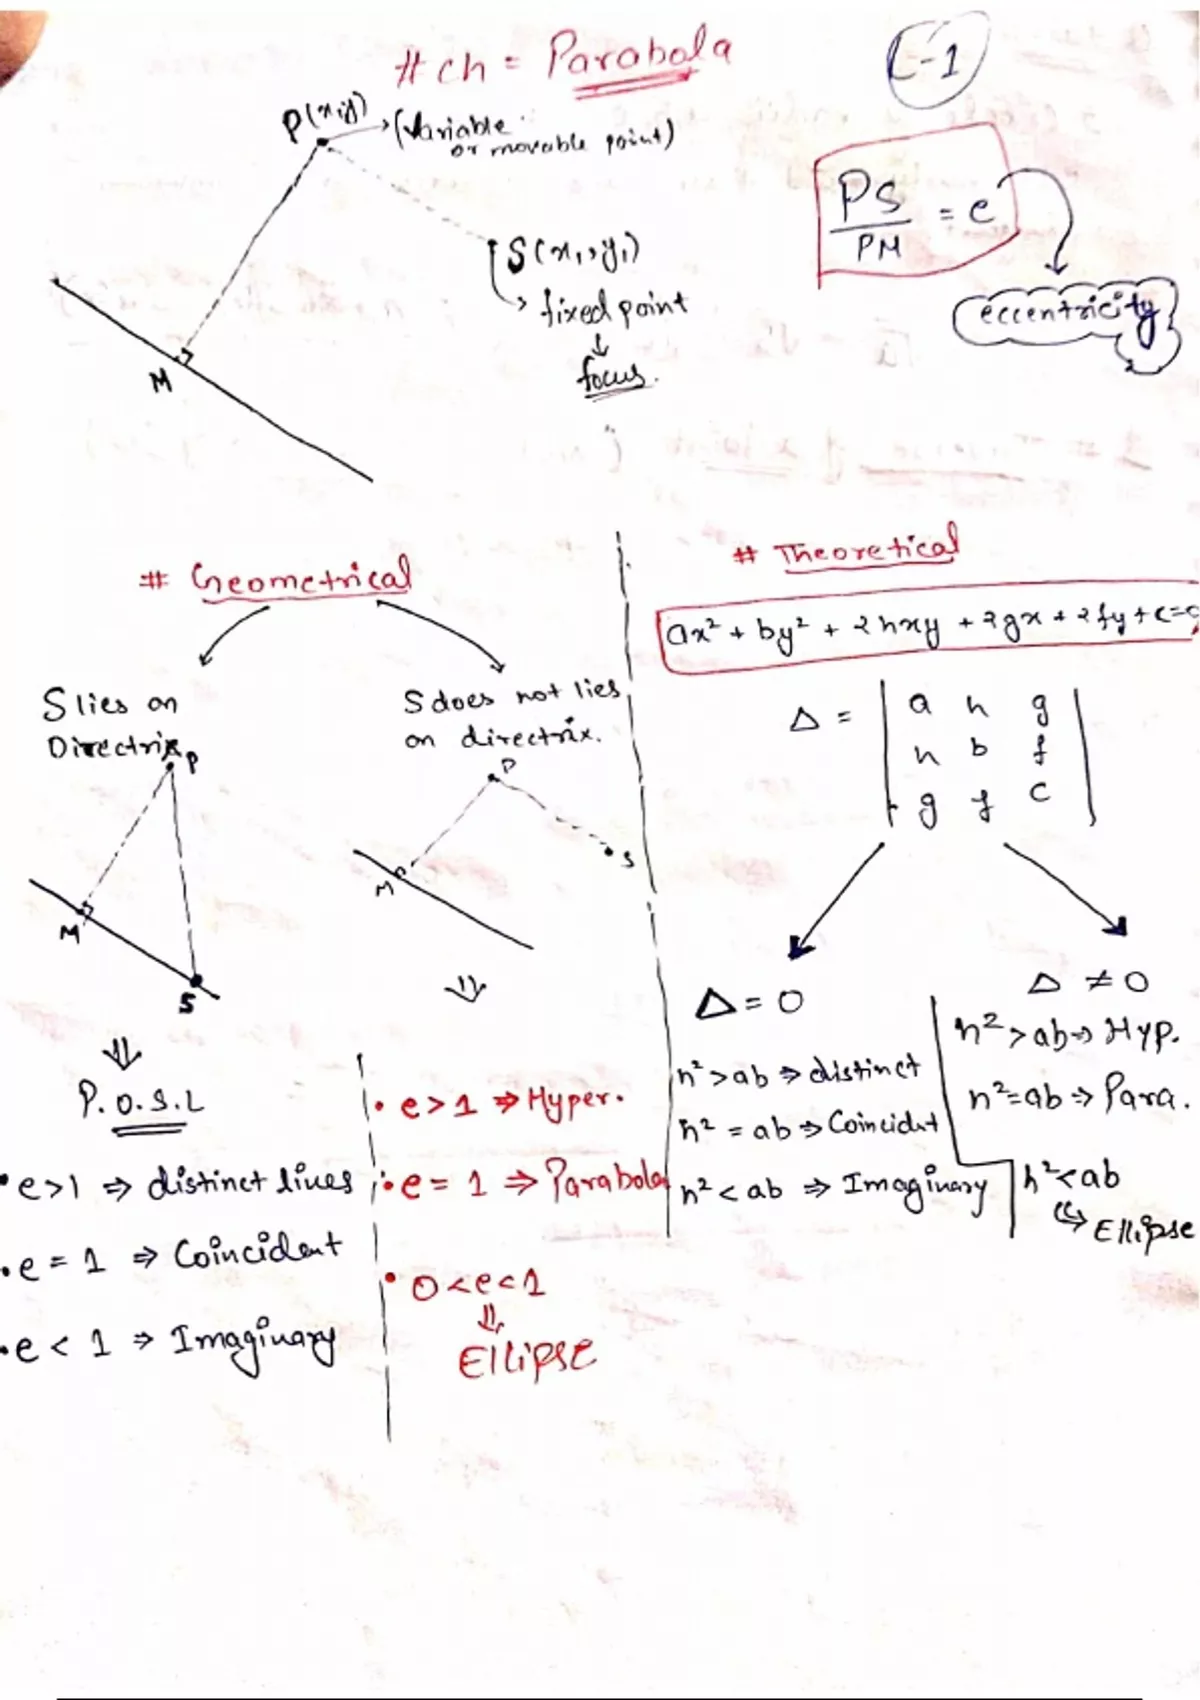 # ch = Parabola
L-1
P(x,y) → (Variable or movable point)
S(x₁, y₁)
→ fixed point
↓
focus.
M
PS/PM = e
eccentricity
# Geometrical
S lies on
Directrix
P
M
S
⇓
P.O.S.L
• e>1 ⇒ distinct lines
• e = 1 ⇒ Coincident
• e < 1 ⇒ Imaginary
S does not lies
on directrix.
P
M
S
⇓
• e > 1 ⇒ Hyper.
• e = 1 ⇒ Parabola
• 0 < e < 1
⇓
Ellipse
# Theoretical
ax² + by² + 2hxy + 2gx + 2fy + c = 0
Δ = | a h g |
| h b f |
| g f c |
Δ = 0
h² > ab ⇒ distinct
h² = ab ⇒ Coincidnt
h² < ab ⇒ Imaginary
Δ ≠ 0
h² > ab ⇒ Hyp.
h² = ab ⇒ Para.
h² < ab
⇒ Ellipse